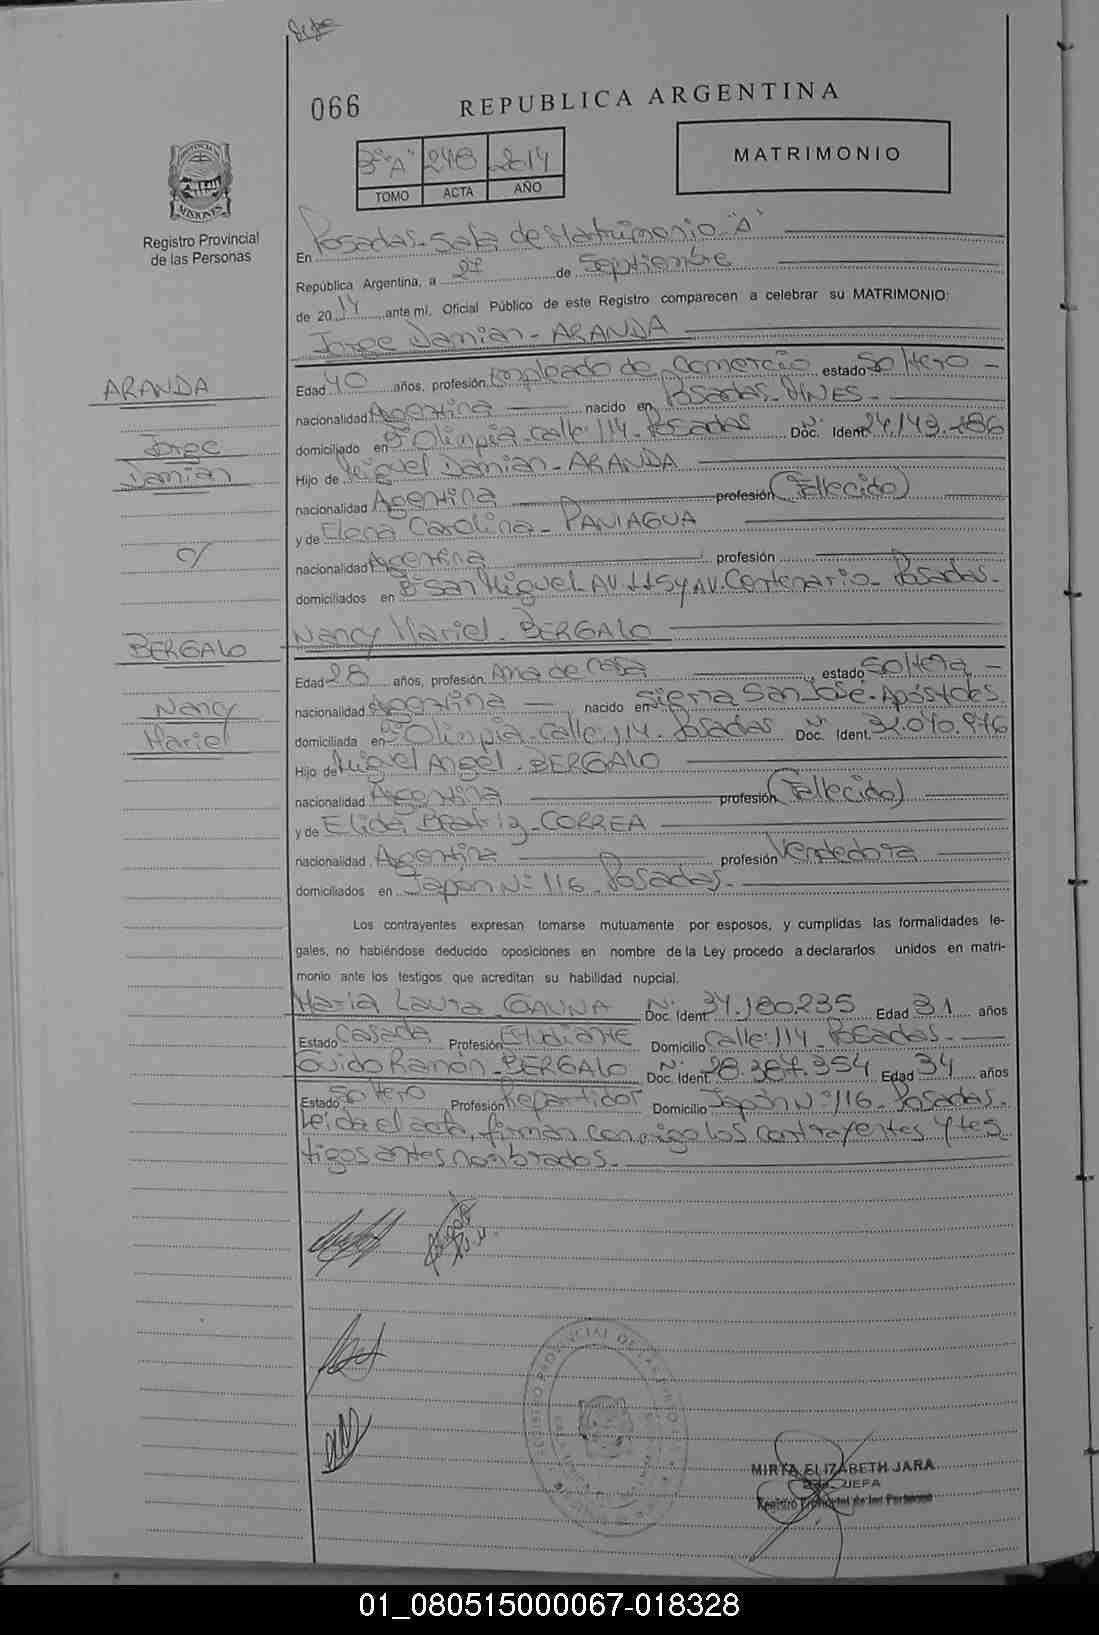 066
REPUBLICA ARGENTINA
3º "A" 248 2014
TOMO ACTA AÑO
MATRIMONIO
Registro Provincial
de las Personas
En Posadas-Sala de Matrimonio "A"
República Argentina, a 27 de Septiembre
de 2014 ante mí, Oficial Público de este Registro comparecen a celebrar su MATRIMONIO:
Jorge Damian-ARANDA
ARANDA
Jorge
Damian
c/
BERGALO
Nancy
Mariel
Edad 40 años, profesión Empleado de Comercio estado Soltero -
nacionalidad Argentina nacido en Posadas-MNES-
domiciliado en Bº Olimpia-Calle 114-Posadas Doc. Ident. 24.143.286
Hijo de Miguel Damian-ARANDA
nacionalidad Argentina profesión (Fallecido)
y de Elena Carolina-PANIAGUA
nacionalidad Argentina profesión
domiciliados en Bº San Miguel-AV.115 y AV.Centenario-Posadas-
Nancy Mariel-BERGALO
Edad 28 años, profesión Ama de casa estado Soltera -
nacionalidad Argentina nacido en Sierra San José-Apóstoles
domiciliada en Bº Olimpia-Calle 114-Posadas Doc. Ident. 32.040.946
Hijo de Miguel Angel-BERGALO
nacionalidad Argentina profesión (Fallecido)
y de Elida Beatriz-CORREA
nacionalidad Argentina profesión Vendedora
domiciliados en Japón Nº 116-Posadas-
Los contrayentes expresan tomarse mutuamente por esposos, y cumplidas las formalidades le-
gales, no habiéndose deducido oposiciones en nombre de la Ley procedo a declararlos unidos en matri-
monio ante los testigos que acreditan su habilidad nupcial.
Maria Laura-GAUNA Doc. Ident. 34.180.235 Edad 31 años
Estado Casada Profesión Estudiante Domicilio Calle 114-Posadas-
Guido Ramón-BERGALO Doc. Ident. 28.367.354 Edad 34 años
Estado Soltero Profesión Repartidor Domicilio Japón Nº 116-Posadas-
Leida el acta, firman conmigo los contrayentes y tes
tigos antes nombrados-
MIRTA ELIZABETH JARA
JEFA
Registro Provincial de las Personas
01_080515000067-018328